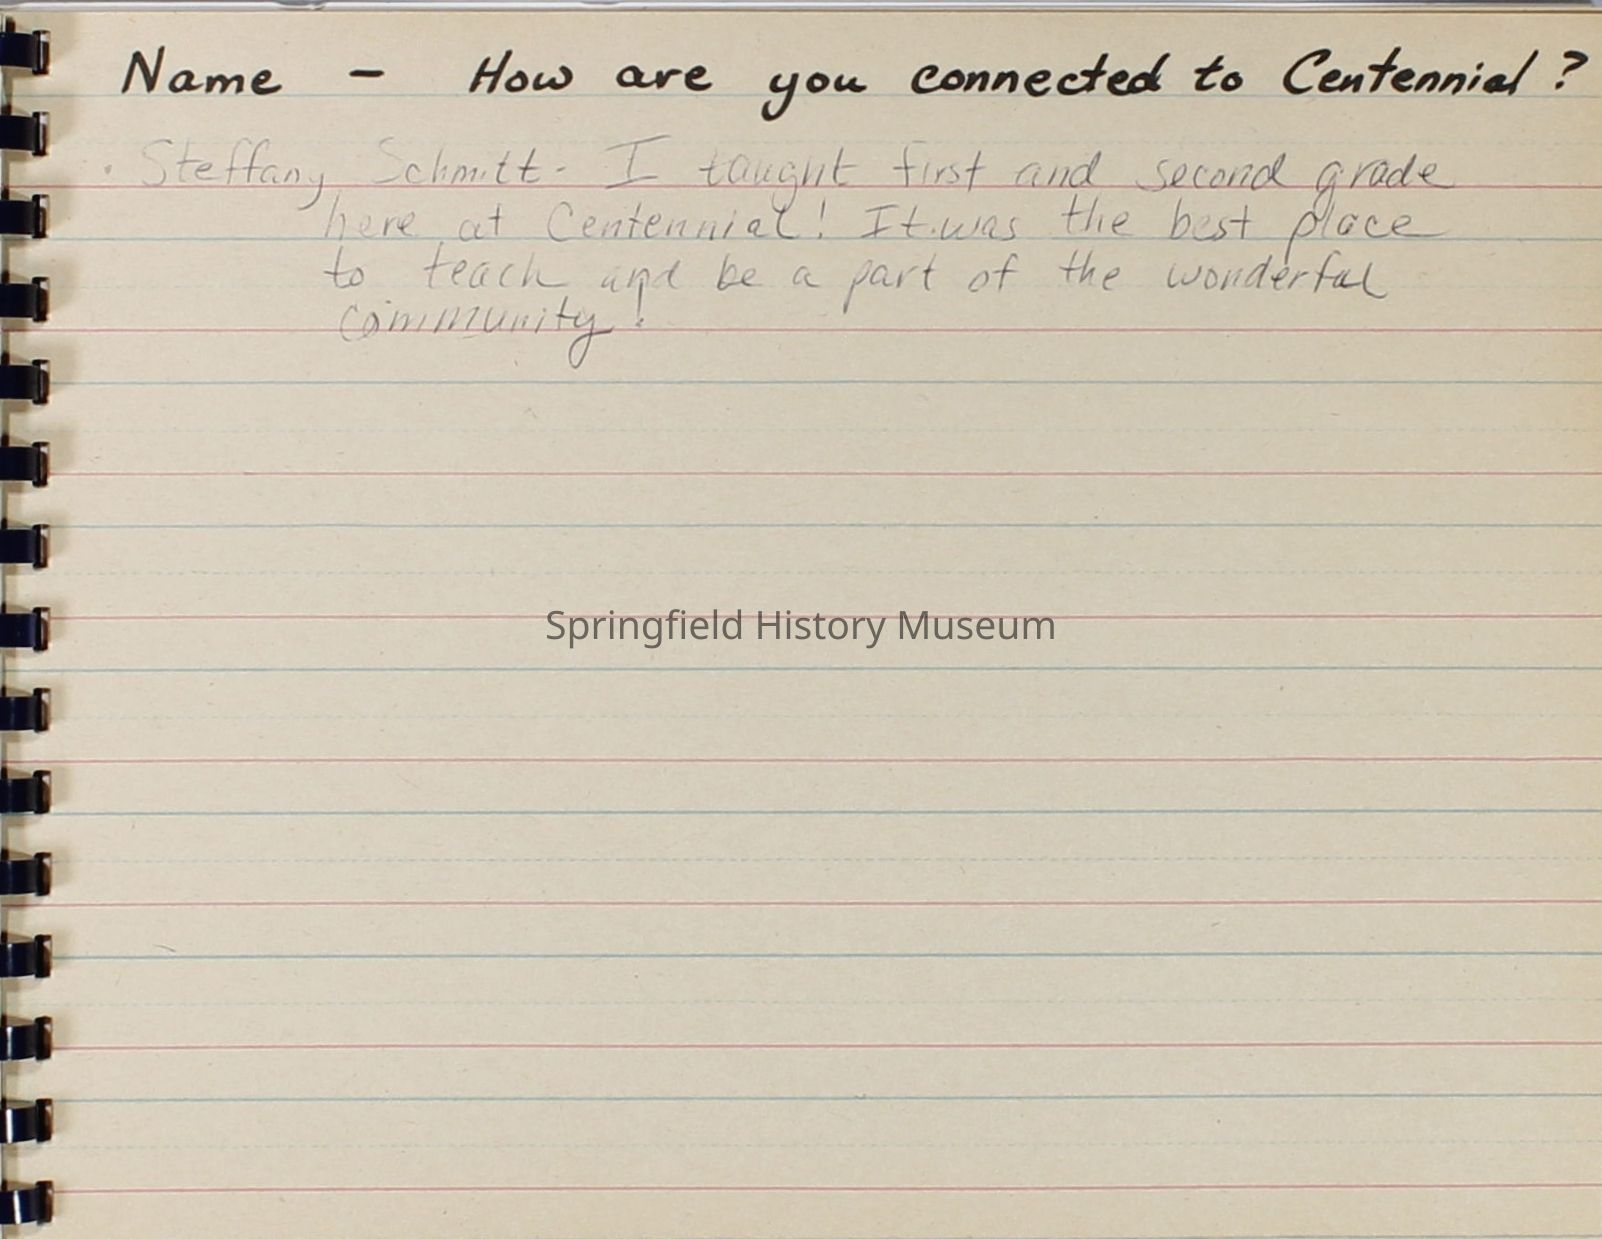 Name - How are you connected to Centennial?
· Steffany Schmitt - I taught first and second grade
here at Centennial! It was the best place
to teach and be a part of the wonderful
community!
Springfield History Museum